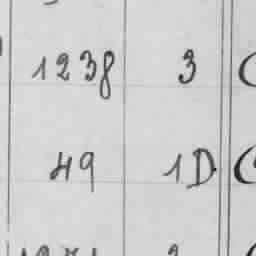 1238 3
49 1D